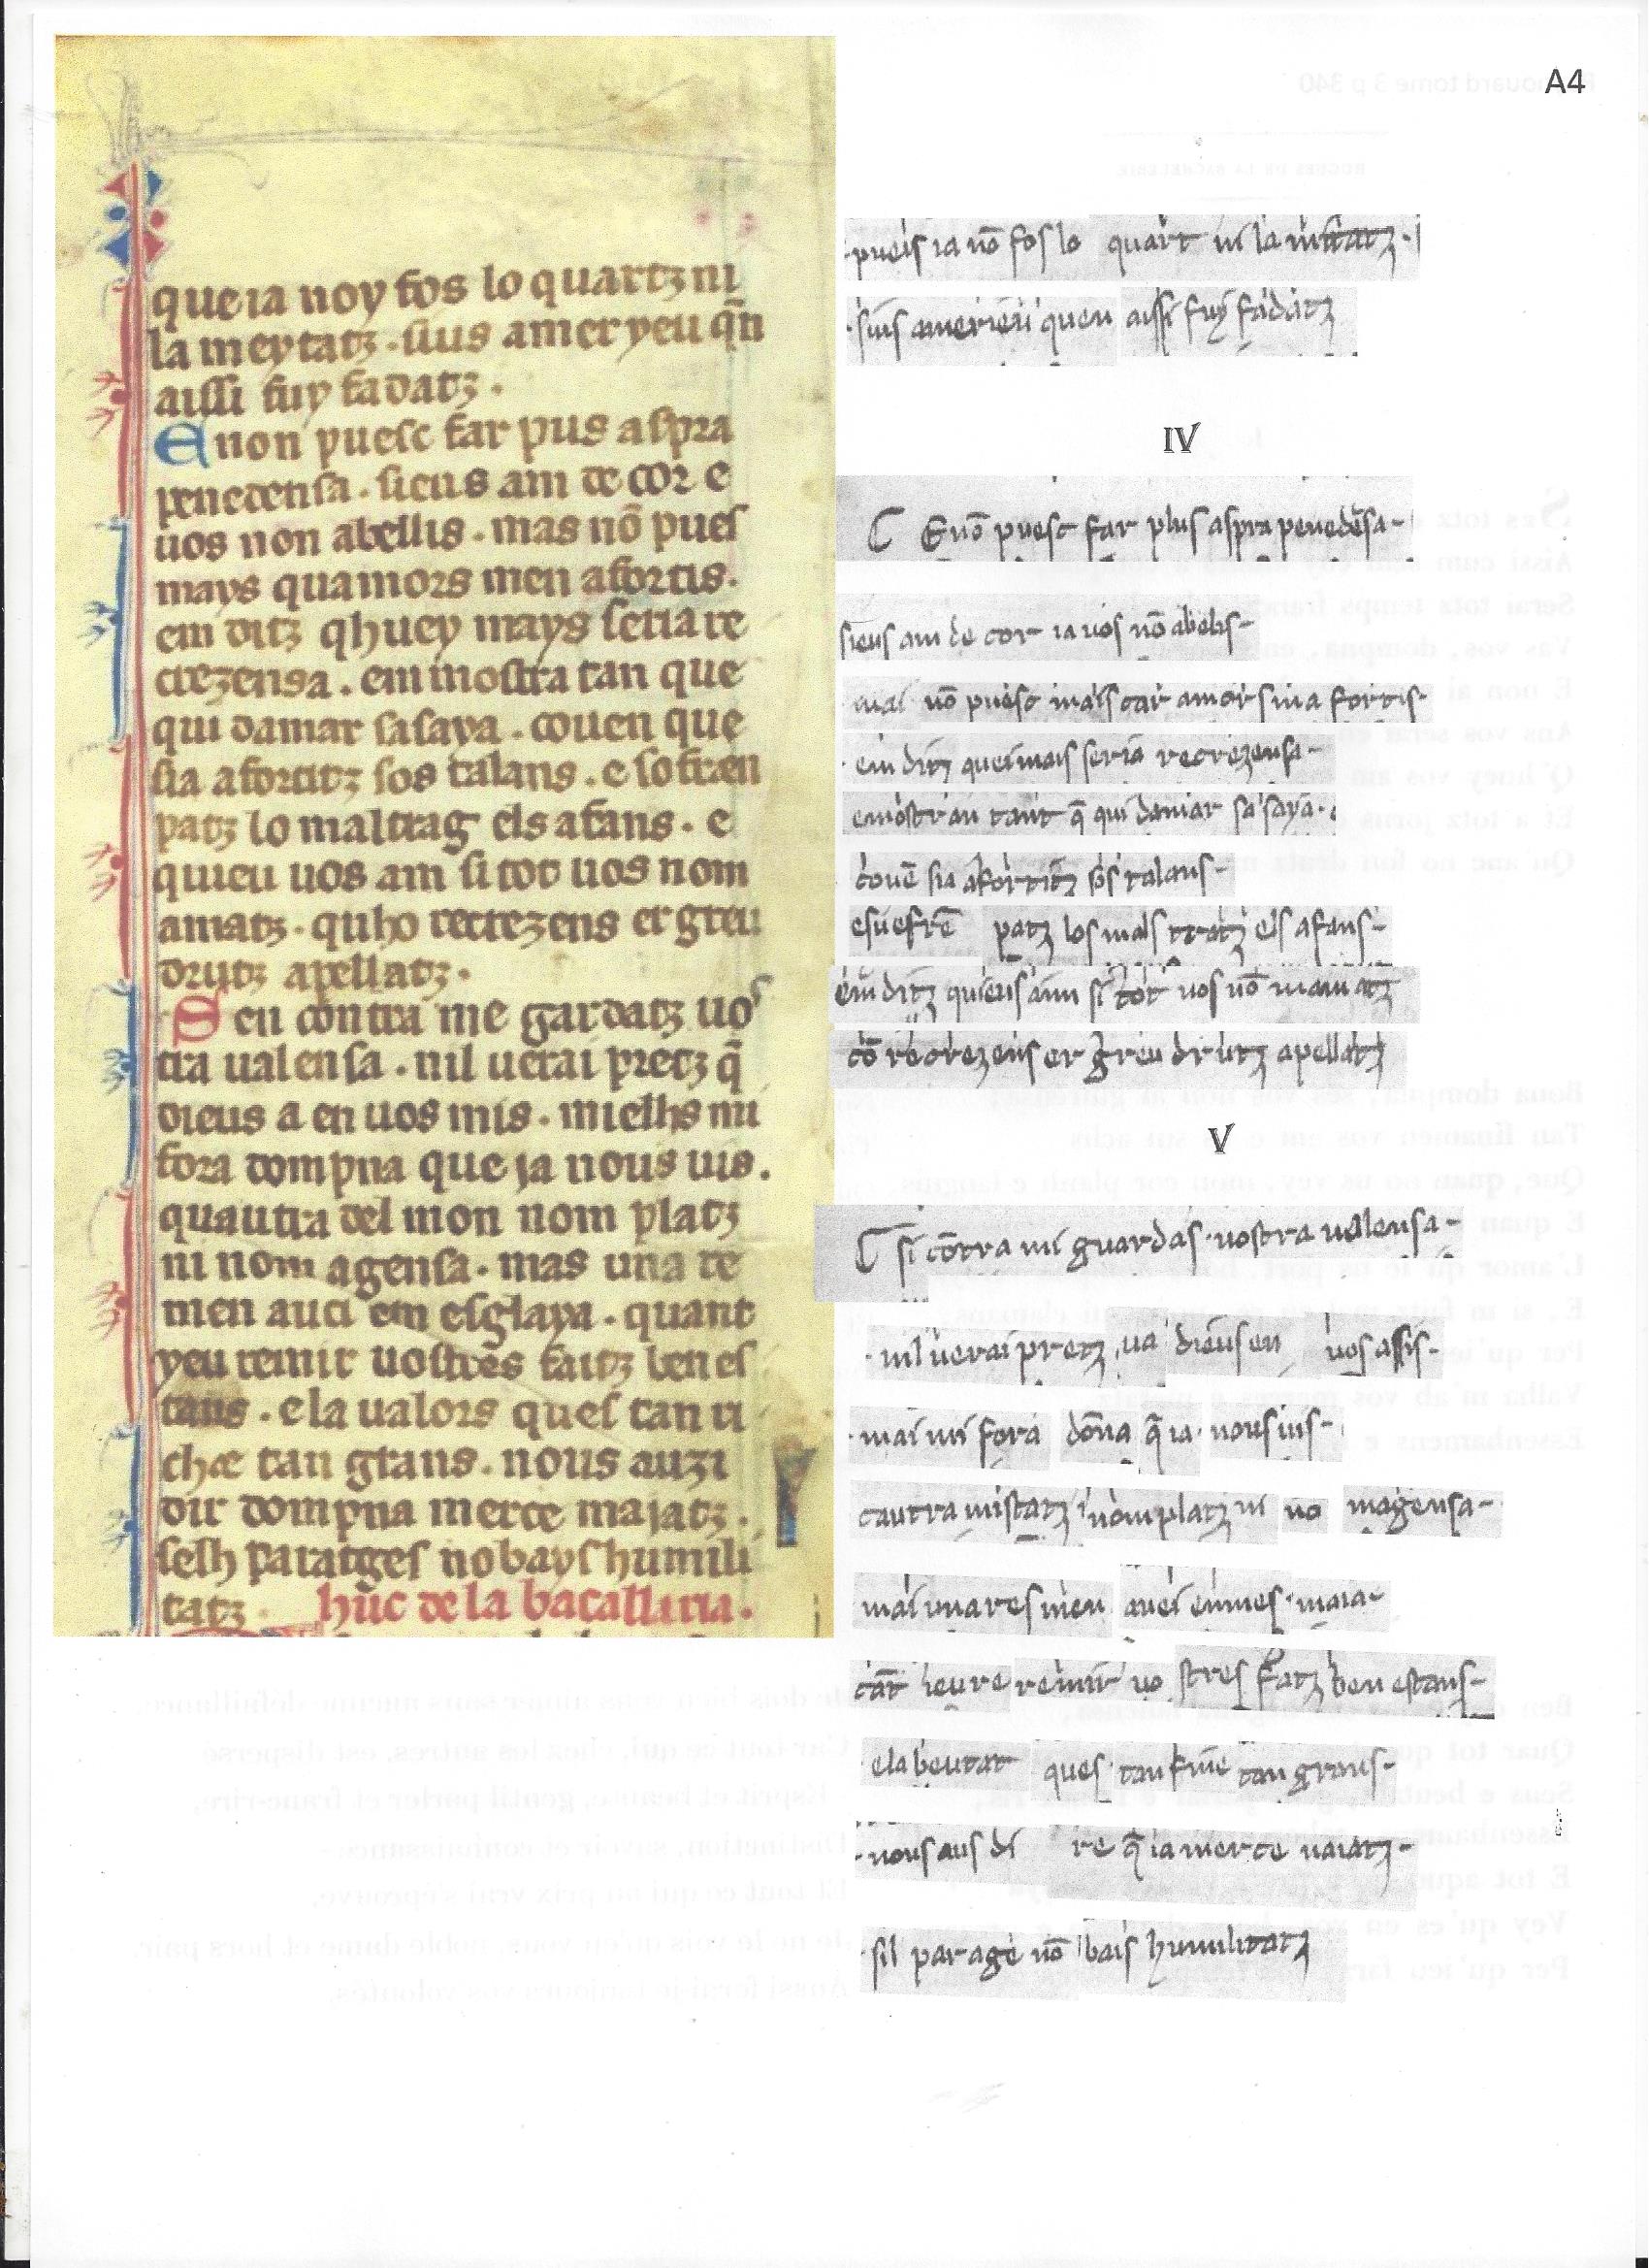 A4
que ia noy fos lo quartz ni
la meytatz . sius amer yeu q̃n
aissi fuy fadatz .
E non puesc far pus aspra
penedensa . sieus am de cor e
uos non abellis . mas nō pues
mays quamors men afortis .
em ditz qhuey mays seria re
crezensa . em mostra tan que
qui damar sasaya . couen que
sia afortitz sos talans . e sofren
patz lo maltrag els afans . e
quieu uos am si tot uos nom
amatz . quho recrezens er greu
drutz apellatz .
S eu contra me gardatz uos
tra ualensa . nil uerai pretz q̃
dieus a en uos mis . mielhs mi
fora dompna que ja nous uis .
quautra del mon nom platz
ni nom agensa . mas una re
men auci em esglaya . quant
yeu remir uostres faitz benes
tans . e la ualors ques tan ri
ch e tan grans . nous auzi
dir dompna merce majatz .
selh paratges nobays humili
tatz .
huc de la bacallaria .
pueis ia nō fos lo quart ni la mitatz .
sius amerieu queu aissi fuy fadatz
IV
E nō puesc far plus aspra penedēsa -
sieus am de cor ia uos nō abelis -
mai nō puesc mais car amors ma fortis -
em ditz queimais seria recrezensa -
emostran tant q̄ qui damar sa saya .
couē sia afortitz sos talans -
esuefrē patz los mals tratz els afans -
em ditz quieus am si tot uos nō mamatz
cō recrezens er greu drutz apellatz
V
si cōtra mi guardas uostra ualensa -
nil uerai pretz ua dieus en uos assis -
mai mi fora dōna q̄ ia nous uis -
cautra mistatz nom platz ni no magensa -
mai una res men auci em mes maia -
cāt ieu re remir uo stres fatz ben estans -
e la beutat ques tan fine tan grans -
nous aus di re q̄ ia merce naiatz -
sil parage nō bais humilitatz